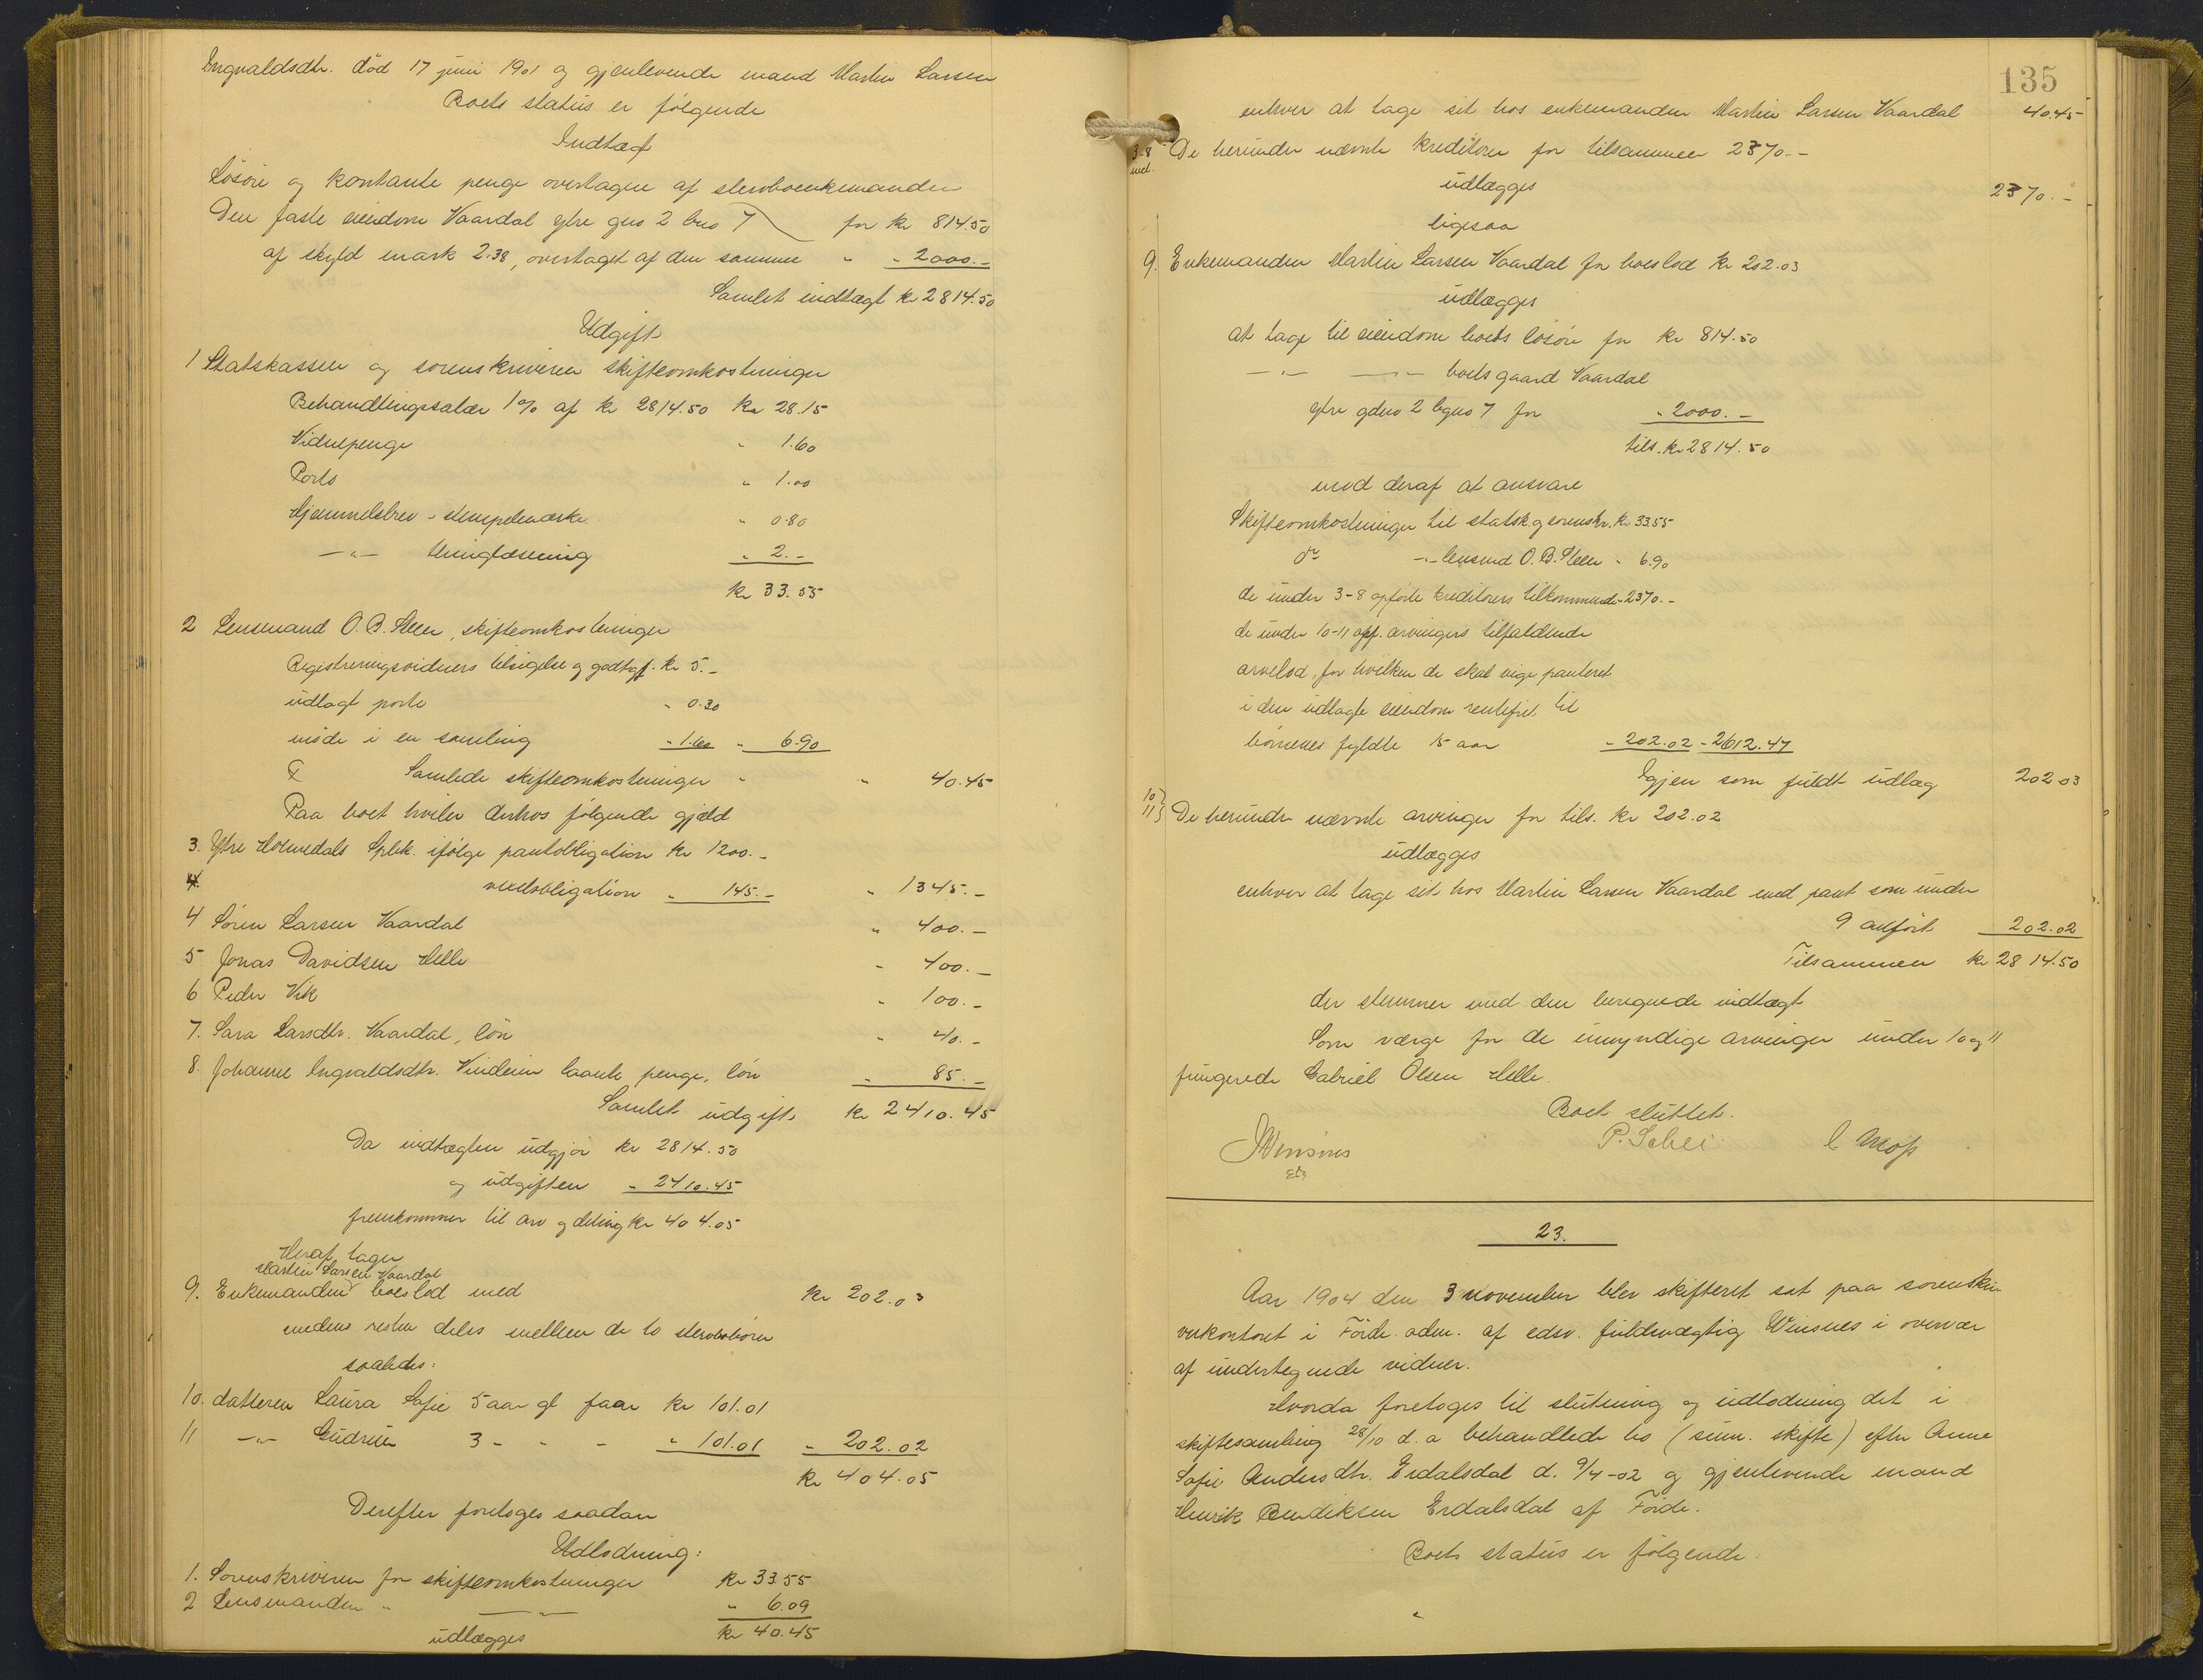 Ingvaldsdtr. död 17 juni 1901 og gjenlevende mand Martin Larsen
Boets status er følgende
Indtægt
Løsøre og kontante penge overtagen af stervboenkemanden
Den faste eiendom Vaardal ytre gno 2 bno 7 for kr 814.50
af skyld mark 2.38, overtaget af den samme " - 2000.-
Samlet indtægt kr 2814.50
Udgift
1 Statskassen og sorenskriveren skifteomkostninger
Behandlingssalær 1% af kr 2814.50 kr 28.15
Vidnepenge " 1.60
Porto " 1.00
Hjemmelsbrev - stempelmærke " 0.80
-"- thinglæsning " 2.-
kr 33.55
2 Lensmand O. B. Steen, skifteomkostninger
Registreringsvidners tilsigelse og godtgj. kr 5.-
udlagt porto " 0.30
møde i en samling - 1.60 " 6.90
Samlede skifteomkostninger " " 40.45
Paa boet hviler derhos følgende gjæld
3. Ytre Holmedals Spbk. ifølge pantobligation kr 1200.-
4. vexelobligation " 145.- " 1345.-
4 Sören Larsen Vaardal " 400.-
5 Jonas Davidsen Helle " 400.-
6 Peder Vik " 100.-
7. Sara Larsdtr. Vaardal, løn " 40.-
8. Johanne Ingvaldsdtr. laante penge, løn " 85.-
Samlet udgift kr 2410.45
Da indtægten udgjør kr 2814.50
og udgiften " 2410.45
fremkommer til arv og deling kr 404.05
Heraf tager
Martin Larsen Vaardal
9. Enkemanden boeslod med kr 202.03
medens resten deles mellem de to stervbobørn
saaledes:
10. datteren Laura Sofie 5 aar gl faar kr 101.01
11 -"- Gudrun 3 - - - " 101.01 " 202.02
kr 404.05
Derefter foretoges saadan
Udlodning:
1. Sorenskriveren for skifteomkostninger kr 33.55
2 Lensmanden " -"- " 6.09
udlægges kr 40.45
135
enhver at tage sit hos enkemanden Martin Larsen Vaardal 40.45
3-8 incl. De herunder nævnte kreditorer for tilsammen 2370.-
udlægges 2370.-
ligesaa
9. Enkemanden Martin Larsen Vaardal for boeslod kr 202.03
udlægges
at tage til eiendom boets løsøre for kr 814.50
-"- -"- boets gaard Vaardal
ytre gdno 2 bgno 7 for " 2000.-
tils. kr 2814.50
mod deraf at ansvare
Skifteomkostninger til statsk. og sorenskr. kr 33.55
do -"- lensmd O. B. Steen " 6.90
de under 3-8 opførte kreditorers tilkommende - 2370.-
de under 10-11 opf. arvingers tilfaldende
arvelod, for hvilken de skal nyde panteret
i den udlagte eiendom rentefrit til
börnenes fyldte 15 aar " 202.02 - 2612.47
Igjen som fuldt udlæg 202.03
10 11} De herunder nævnte arvinger for tils. kr 202.02
udlægges
enhver at tage sit hos Martin Larsen Vaardal med pant som under
9 anført 202.02
Tilsammen kr 2814.50
der stemmer med den beregnede indtægt
Som værge for de umyndige arvinger under 10 og 11
fungerede Gabriel Olsen Helle.
Boet sluttet.
P. Schei
23.
Aar 1904 den 3 november blev skifteret sat paa sorenskri-
verkontoret i Förde adm. af edsv. fuldmægtig Winsnes i overvær
af undertegnede vidner.
Hvorda foretoges til slutning og udlodning det i
skiftesamling 28/10 d. a. behandlede bo (sum. skifte) efter Anne
Sofie Andersdtr. Erdalsdal d. 9/4-02 og gjenlevende mand
Henrik Bendiksen Erdalsdal af Förde.
Boets status er følgende: